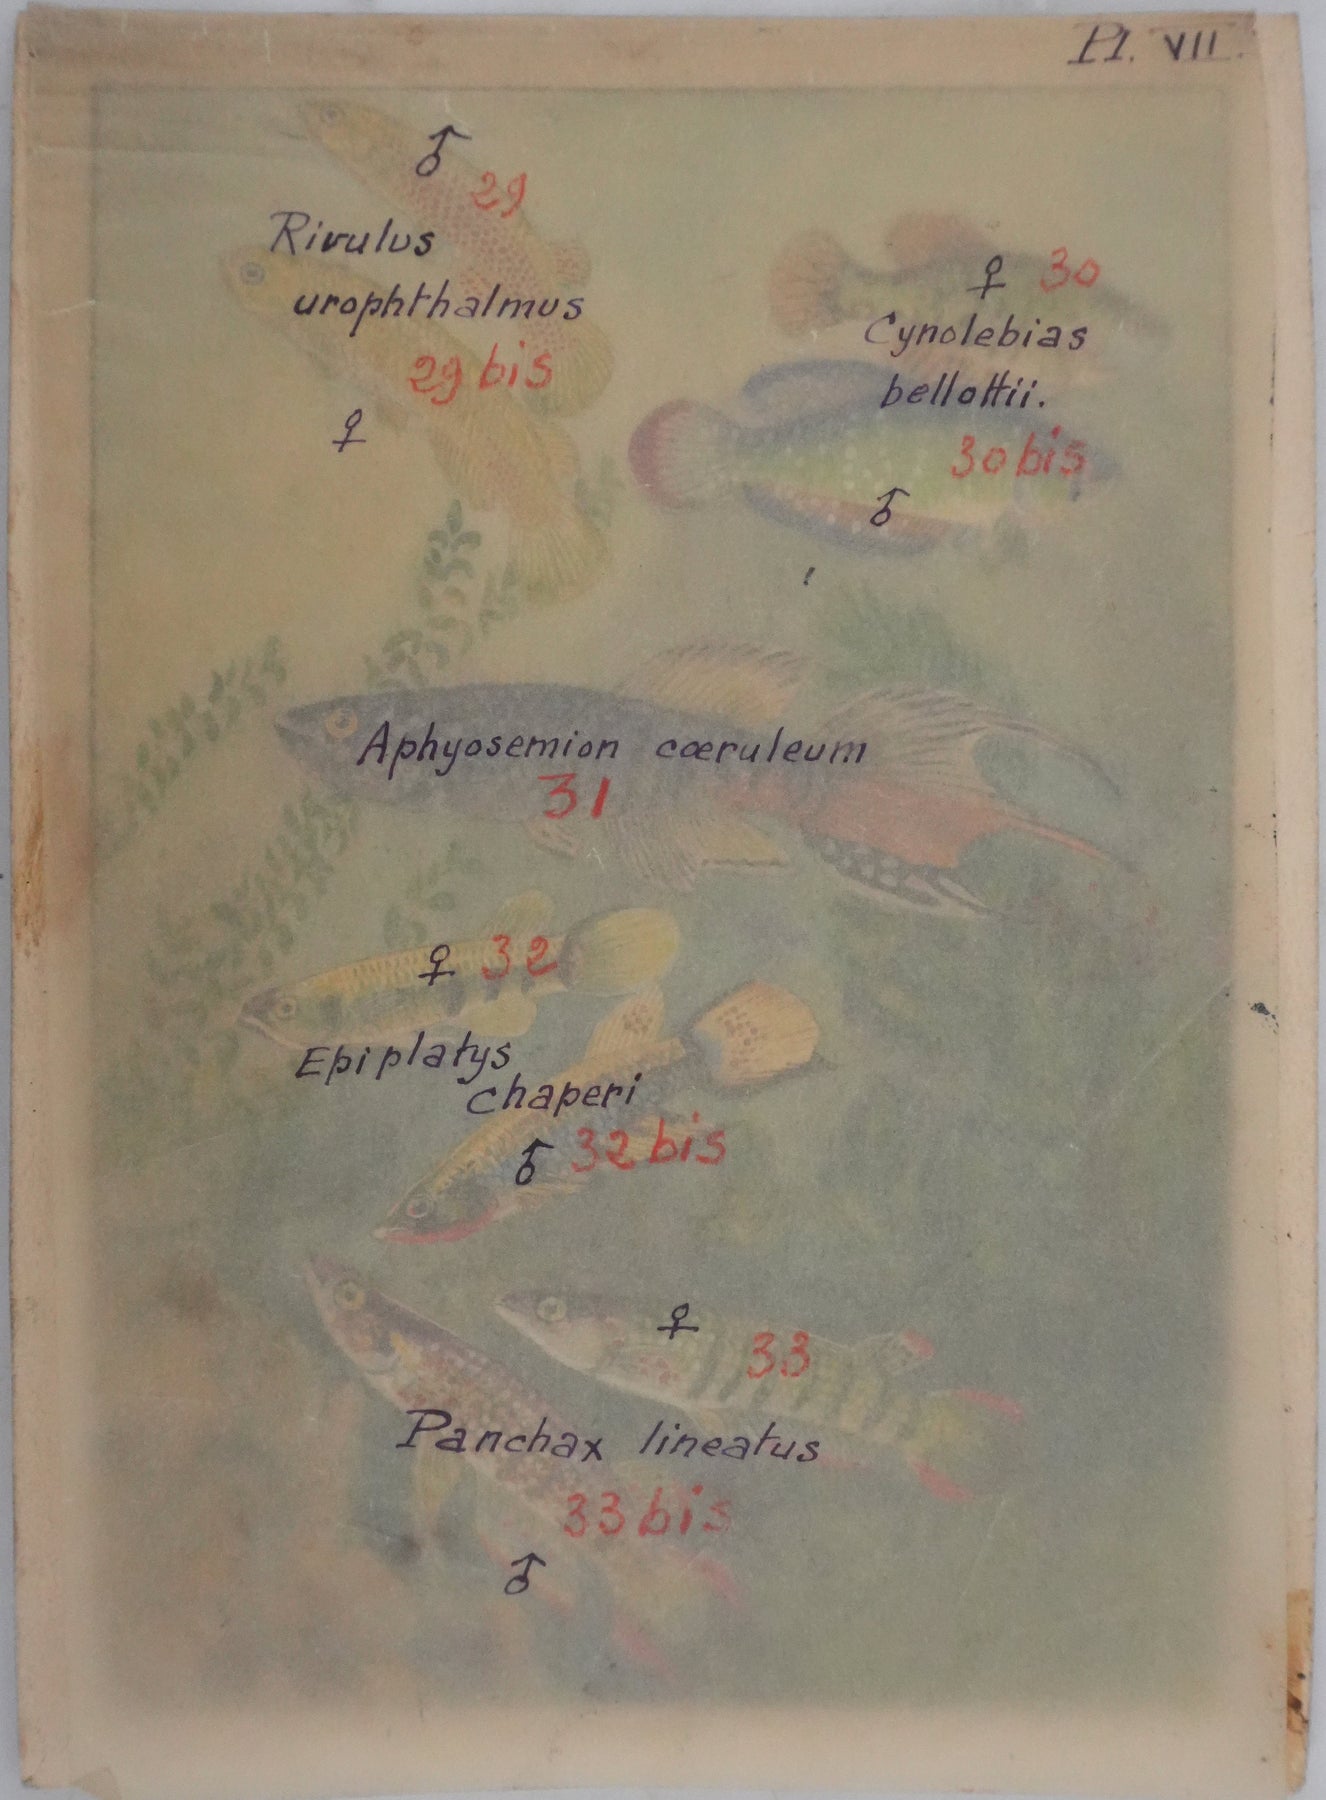 Pl. VII.
♂
29
Rivulus
urophthalmus
29 bis
♀
♀ 30
Cynolebias
bellottii.
30 bis
♂
Aphyosemion cæruleum
31
♀ 32
Epiplatys
chaperi
♂ 32 bis
♀
33
Panchax lineatus
33 bis
♂